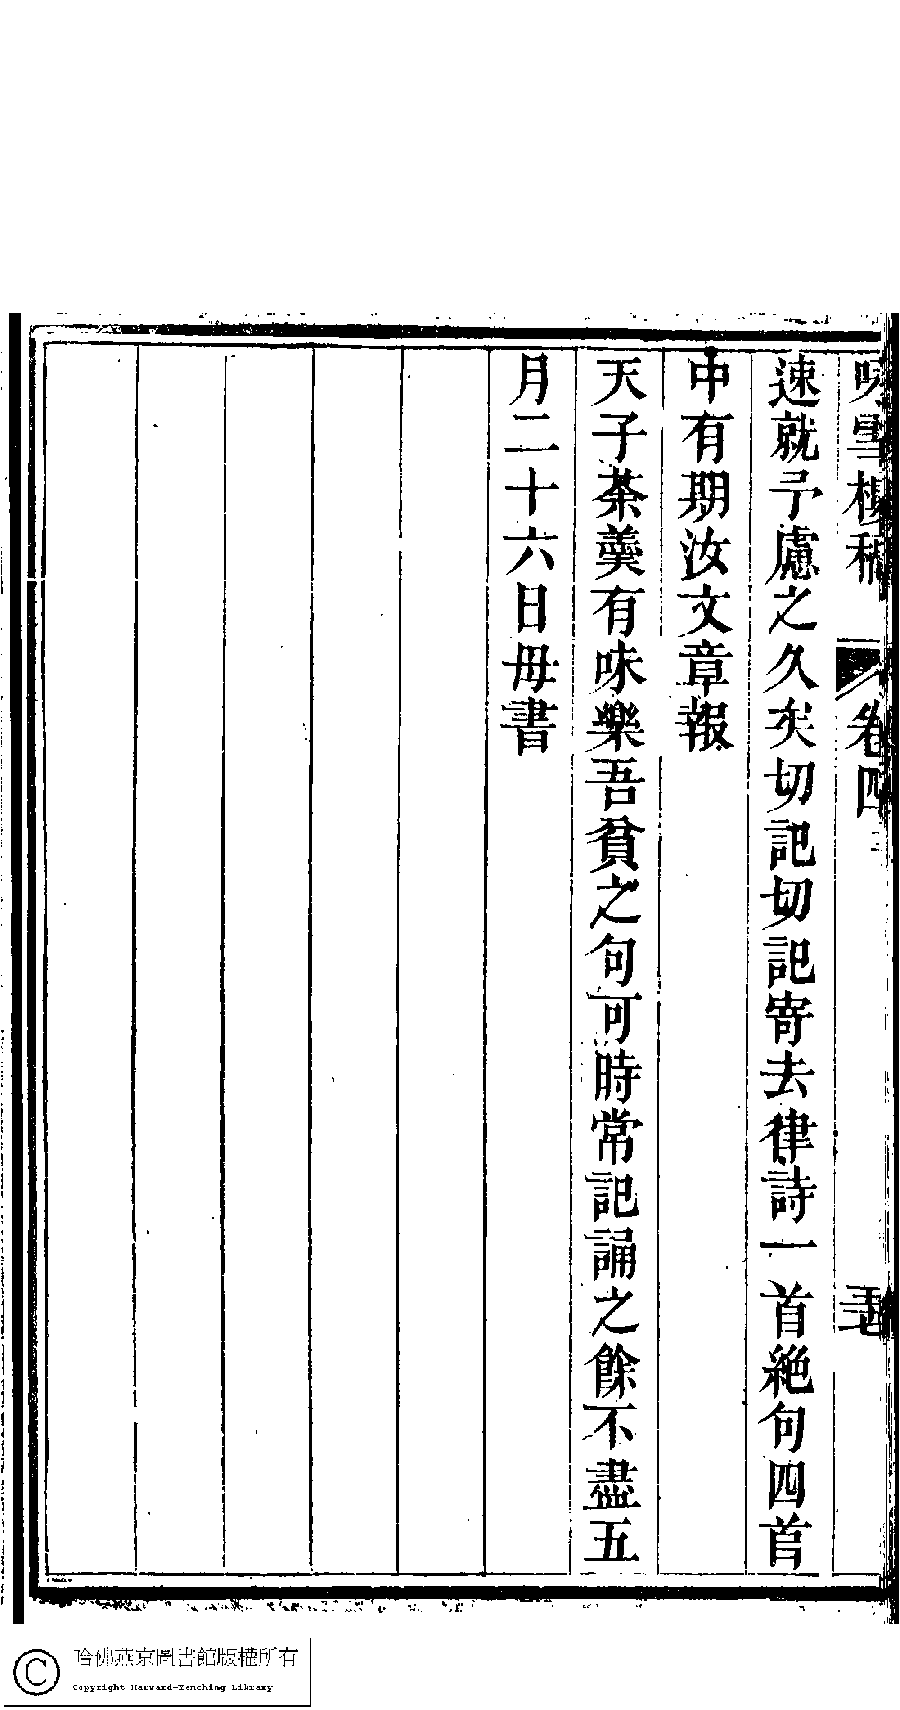 咏雪樓稿 卷四
速就予慮之久矣切記切記寄去律詩一首絶句四首
中有期汝文章報
天子茶羹有味樂吾貧之句可時常記誦之餘不盡五
月二十六日母書
哈佛燕京圖書館版權所有
Copyright Harvard-Yenching Library